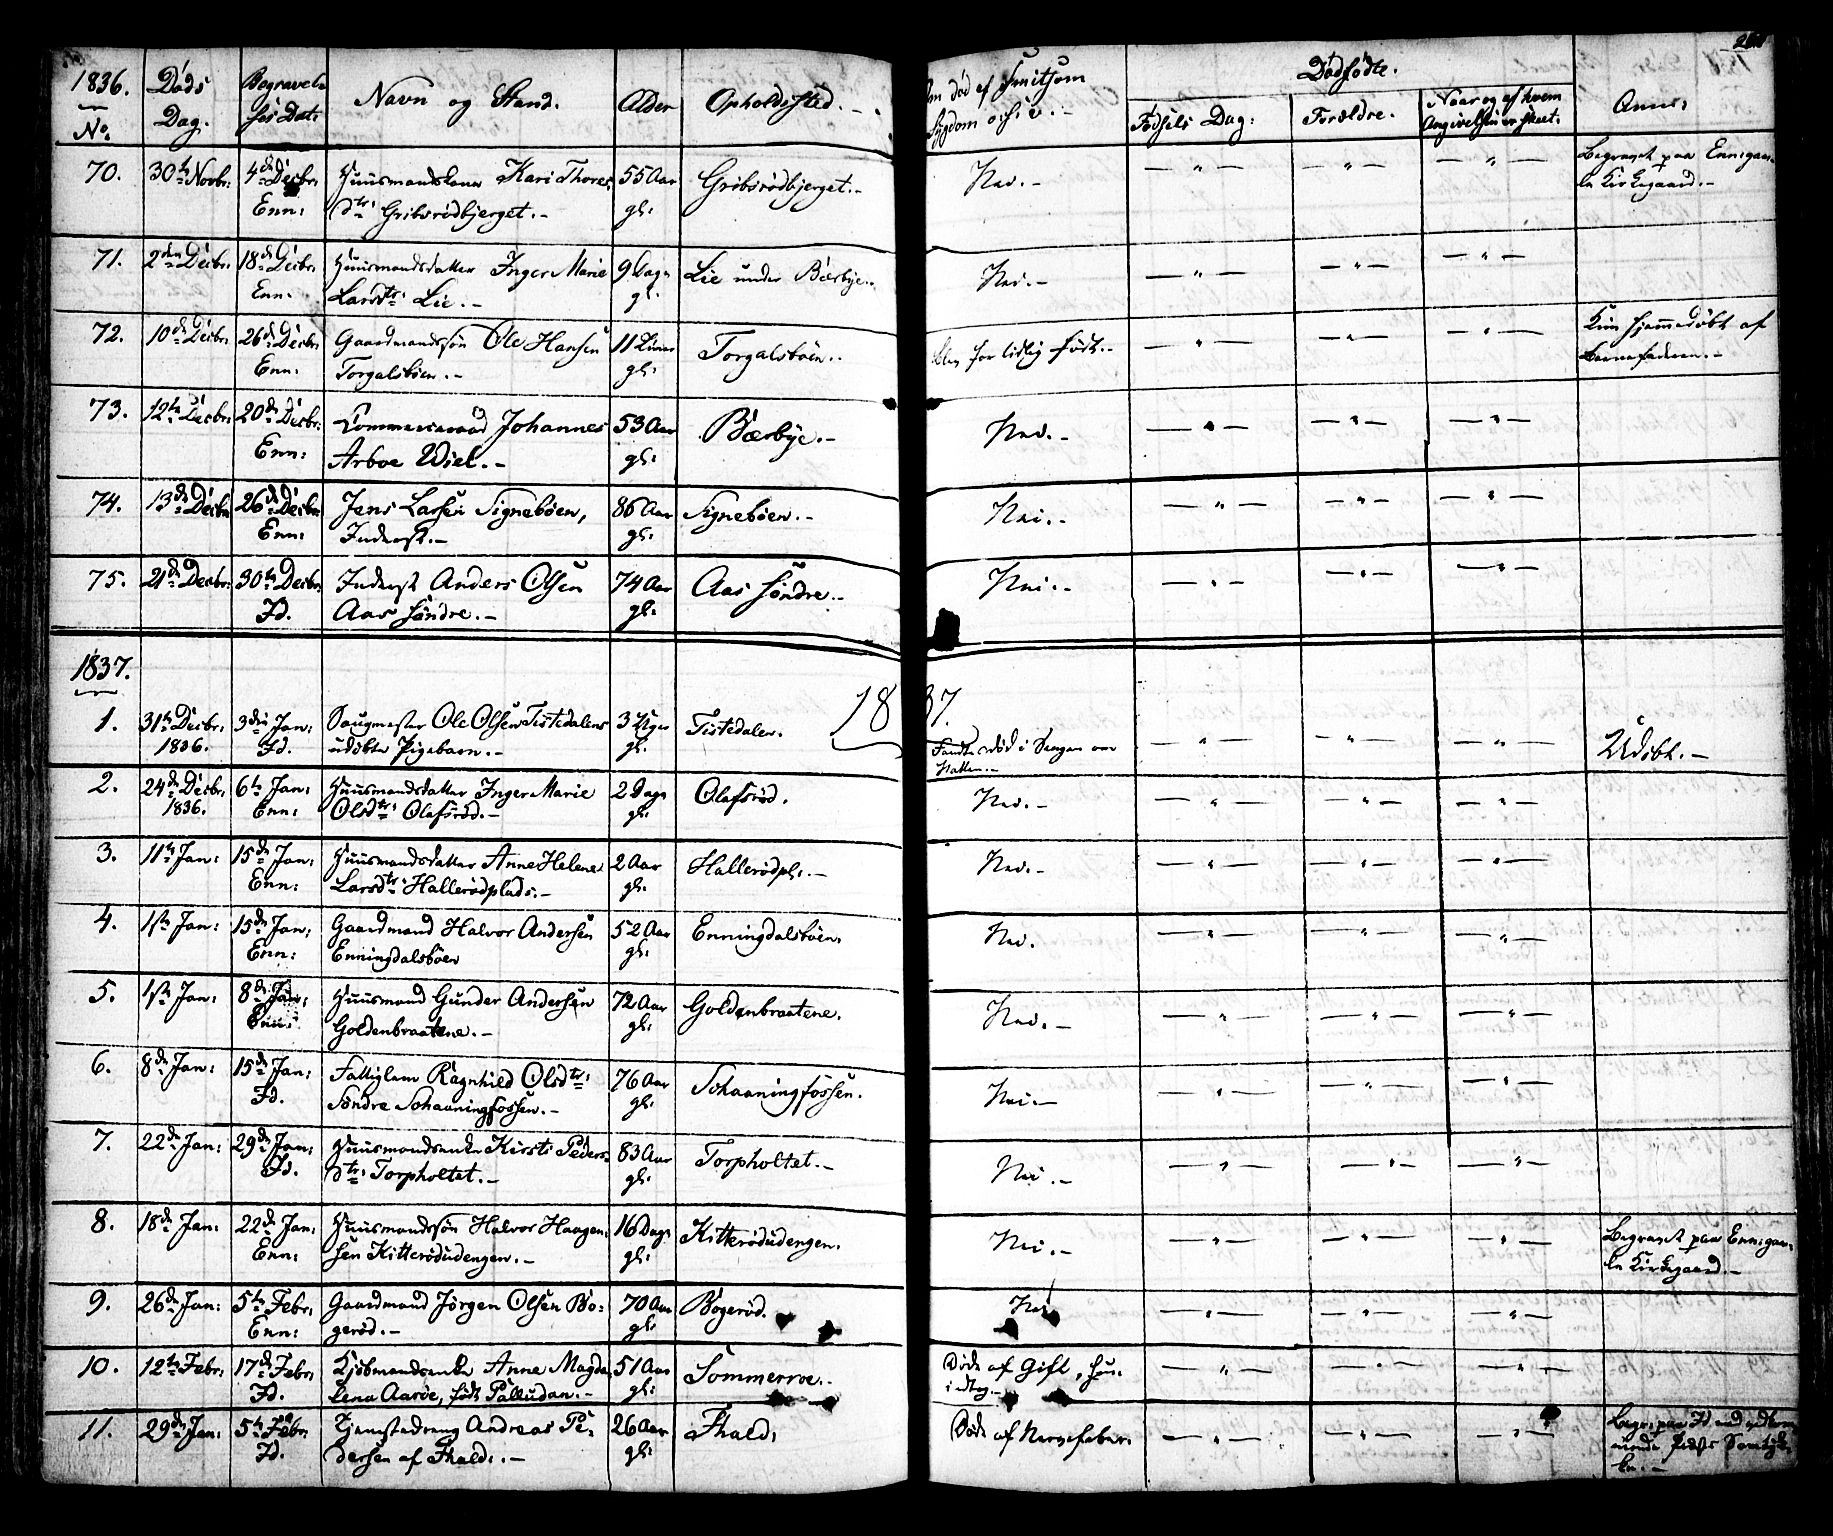 1836. Døds Begravel- Navn og Stand. Alder Opholdssted. Om død af Smitsom Dødfødte. Anm:
No: Dag. ses Dat: Sygdom o:s:v:- Fødsels Dag: Forældre. Naar og af hvem
Angivelsen er skeet.
70. 30te Novbr: 4de Decbr: Huusmandskone Kari Thores 55 Aar Gribsrødbjerget.- Nei.- —"— —"— —"— Begravet paa Enn:gam-
Enn: dtr: Gribsrødbjerget.- gl: le Kirkegaard.-
71. 2den Decbr: 18de Decbr: Huusmandsdatter Inger Marie 9 Dage Lie under Bærbye. Nei.- —"— —"— —"—
Enn: Larsdtr: Lie.- gl:
72. 10de Decbr: 26de Decbr: Gaardmandssøn Ole Hansen 11 Timer Torgalsbøen.. Blev for tidlig født.- —"— —"— —"— Kun hjemmedøbt af
Enn: Torgalsbøen.- gl: Barnefaderen.-
73. 12te Decbr: 20de Decbr: Commerceraad Johannes 53 Aar Bærbye.- Nei.- —"— —"— —"—
Enn: Arboe Wiel.- gl:
74. 13de Decbr: 26de Decbr: Jens Larsen Signebøen, 86 Aar Signebøen.- Nei.- —"— —"— —"—
Enn: Inderst.- gl:
75. 21de Decbr: 30te Decbr: Inderst Anders Olsen 74 Aar Aas søndre.- Nei.- —"— —"— —"—
Id. Aas søndre.- gl:
1837.
1837.
1. 31te Decbr: 3die Jan: Saugmester Ole Olsen Tistedalens 3 Uger Tistedalen. Fandtes død i Sengen om —"— —"— —"— Udøbt.-
1836. Id. udøbte Pigebarn.- gl: Natten.-
2. 24de Decbr: 6te Jan: Huusmandsdatter Inger Marie 2 Dage Olafsrød. Nei.- —"— —"— —"—
1836. Enn: Olsdtr: Olafsrød.- gl:
3. 11te Jan: 15de Jan: Huusmandsdatter Anne Helene 2 Aar Hallerødpl:- Nei.- —"— —"— —"—
Enn: Larsdtr: Hallerødplads.- gl:
4. 1ste Jan: 15de Jan: Gaardmand Halvor Andersen 52 Aar Enningdalsbøen. Nei. —"— —"— —"—
Enn: Enningdalsbøen gl:
5. 1ste Jan: 8de Jan: Huusmand Gunder Andersen 72 Aar Goldenbraatene. Nei.- —"— —"— —"—
Enn: Goldenbraatene.- gl:
6. 8de Jan: 15de Jan: Fattiglem Ragnhild Olsdtr: 76 Aar Schaaningfossen. Nei.- —"— —"— —"—
Id. Søndre Schaaningfossen.- gl:
7. 22de Jan: 29de Jan: Huusmandsenke Kirsti Peders- 83 Aar Torpholtet.- Nei.- —"— —"— —"—
Id. dtr: Torpholtet.- gl:
8. 18de Jan: 22de Jan: Huusmandssøn Halvor Haagen- 16 Dage Kitterødudengen. Nei.- —"— —"— —"— Begravet paa Enn:gam-
Enn: sen Kitterødudengen.- gl: le Kirkegaard.-
9. 26de Jan: 5te Febr: Gaardmand Jørgen Olsen Bo- 70 Aar Bogerød. Nei —"— —"— —"—
Enn: gerød.- gl:
10. 12te Febr: 17de Febr: Kjøbmandsenke Anne Magda- 51 Aar Sommerroe.- Døde af Gift, hun —"— —"— —"—
Id. lena Aarøe, født Palludan.- gl:
11. 29de Jan: 5te Febr: Tjenestedreng Andreas Pe- 26 Aar Thald: Døde af Nervefeber. —"— —"— —"— Begr: paa Id
Id. dersen af Thald:.- gl: